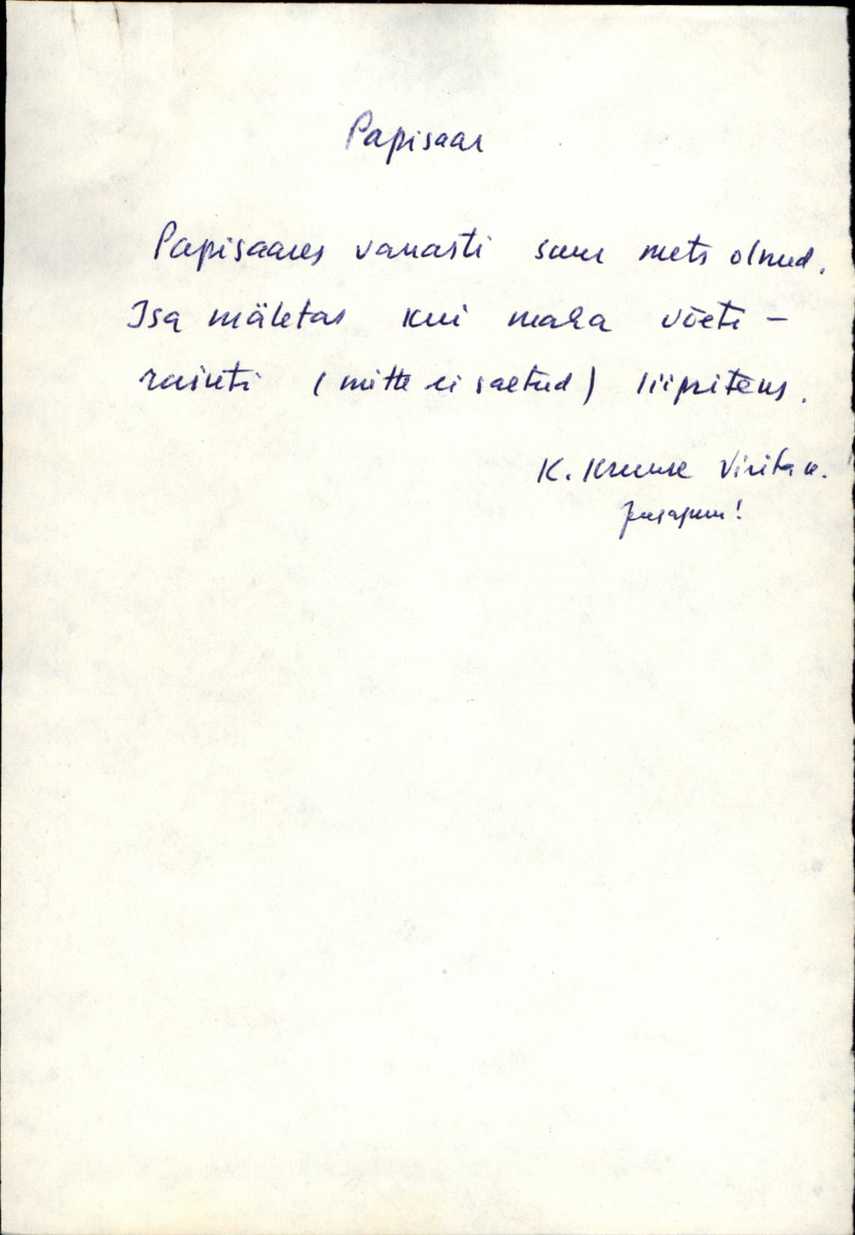 Papisaar
Papisaares vanasti suur mets olnud.
Isa mäletas kui maha võeti –
raiuti (mitte ei saetud) liipriteks.
K. Kruuse Viritan.